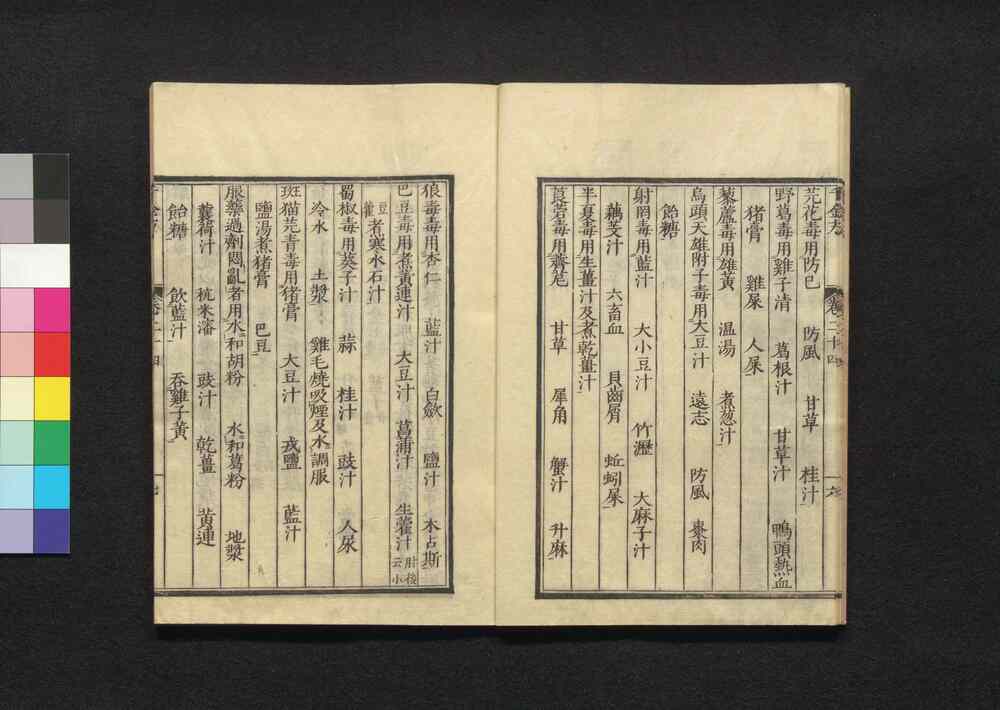 千金方 卷二十四 一六
芫花毒用防已 防風 甘草 桂汁
野葛毒用雞子清 葛根汁 甘草汁 鴨頭熱血
猪膏 雞屎 人屎
藜蘆毒用雄黄 温湯 煮葱汁
烏頭天雄附子毒用大豆汁 遠志 防風 棗肉
飴糖
射罔毒用藍汁 大小豆汁 竹瀝 大麻子汁
藕芰汁 六畜血 貝齒屑 蚯蚓屎
半夏毒用生薑汁及煮乾薑汁
莨菪毒用薺苨 甘草 犀角 蟹汁 升麻
狼毒毒用杏仁 藍汁 白歛 鹽汁 木占斯
巴豆毒用煮黄連汁 大豆汁 菖蒲汁 生藿汁 肘後云小
豆藿 煮寒水石汁
蜀椒毒用葵子汁 蒜 桂汁 豉汁 人尿
冷水 土漿 雞毛燒吸煙及水調服
斑猫芫青毒用猪膏 大豆汁 戎鹽 藍汁
鹽湯煮猪膏 巴豆
服藥過劑悶亂者用水和胡粉 水和葛粉 地漿
蘘荷汁 秔米瀋 豉汁 乾薑 黄連
飴糖 飲藍汁 吞雞子黄